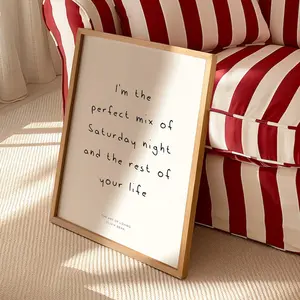 I'm the
perfect mix of
Saturday night
and the rest of
your life